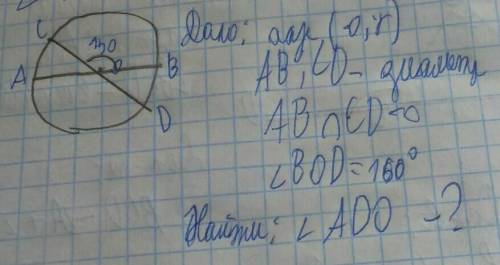 C
130
A O B
D
Дано: окр (o; r)
AB, CD - диаметр
AB ∩ CD = O
∠BOD = 160°
Найти: ∠ADO - ?